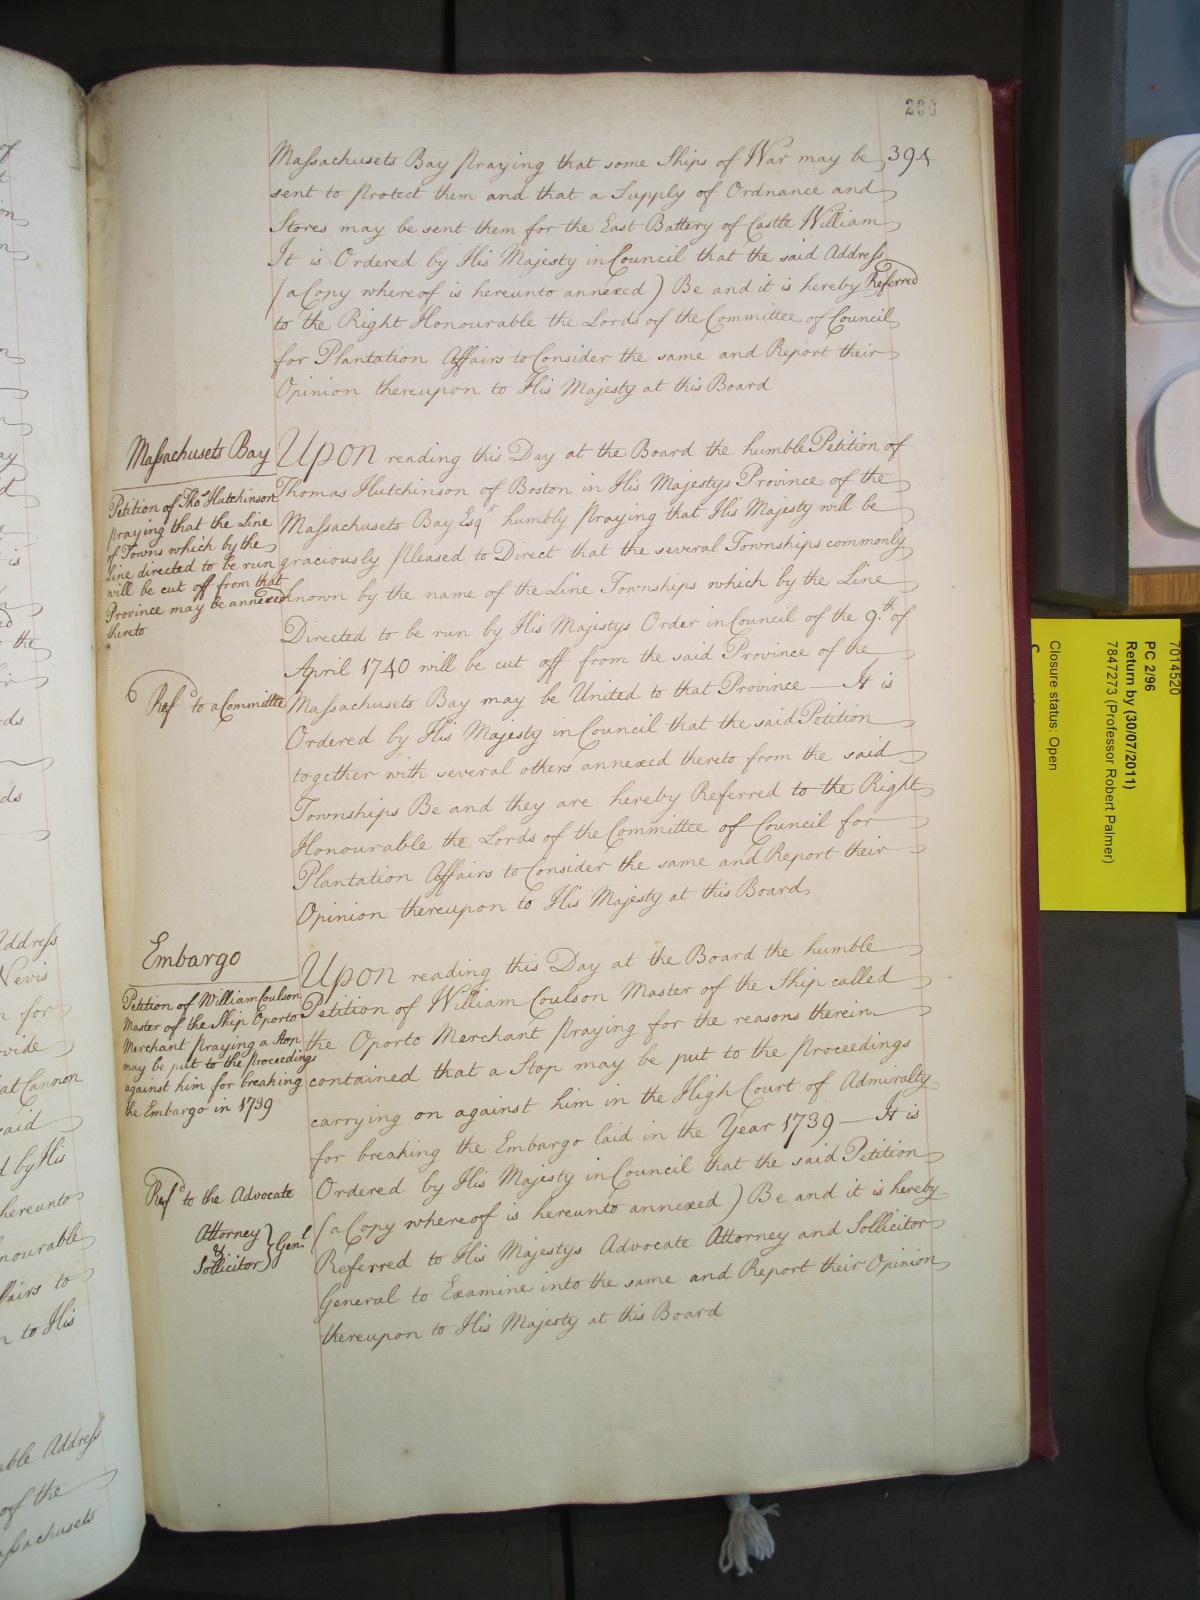 200
394
Massachusets Bay praying that some Ships of War may be
sent to protect them and that a Supply of Ordnance and
Stores may be sent them for the East Battery of Castle William
It is Ordered by His Majesty in Council that the said Address
(a Copy whereof is hereunto annexed) Be and it is hereby Referred
to the Right Honourable the Lords of the Committee of Council
for Plantation Affairs to Consider the same and Report their
Opinion thereupon to His Majesty at this Board
Massachusets Bay
Petition of Thos Hutchinson
praying that the Line
of Towns which by the
Line directed to be run
will be cut off from that
Province may be annexed
thereto
Refd to a Committee
Upon reading this Day at the Board the humble Petition of
Thomas Hutchinson of Boston in His Majestys Province of the
Massachusets Bay Esqr humbly praying that His Majesty will be
graciously pleased to Direct that the several Townships commonly
known by the name of the Line Townships which by the Line
Directed to be run by His Majestys Order in Council of the 9th of
April 1740 will be cut off from the said Province of the
Massachusets Bay may be United to that Province — It is
Ordered by His Majesty in Council that the said Petition
together with several others annexed thereto from the said
Townships Be and they are hereby Referred to the Right
Honourable the Lords of the Committee of Council for
Plantation Affairs to Consider the same and Report their
Opinion thereupon to His Majesty at this Board
Embargo
Petition of William Coulson
Master of the Ship Oporto
Merchant praying a Stop
may be put to the Proceedings
against him for breaking
the Embargo in 1739
Refd to the Advocate
Attorney
&
Sollicitor
Genl
Upon reading this Day at the Board the humble
Petition of William Coulson Master of the Ship called
the Oporto Merchant praying for the reasons therein
contained that a Stop may be put to the Proceedings
carrying on against him in the High Court of Admiralty
for breaking the Embargo laid in the Year 1739 — It is
Ordered by His Majesty in Council that the said Petition
(a Copy whereof is hereunto annexed) Be and it is hereby
Referred to His Majestys Advocate Attorney and Sollicitor
General to Examine into the same and Report their Opinion
thereupon to His Majesty at this Board
7014520
PC 2/96
Return by (30/07/2011)
7847273 (Professor Robert Palmer)
Closure status: Open
of
is
the
Address
Nevis
for
vide
at Cannon
said
d by His
hereunto
nourable
ffairs to
n to His
able Address
of the
assachusets